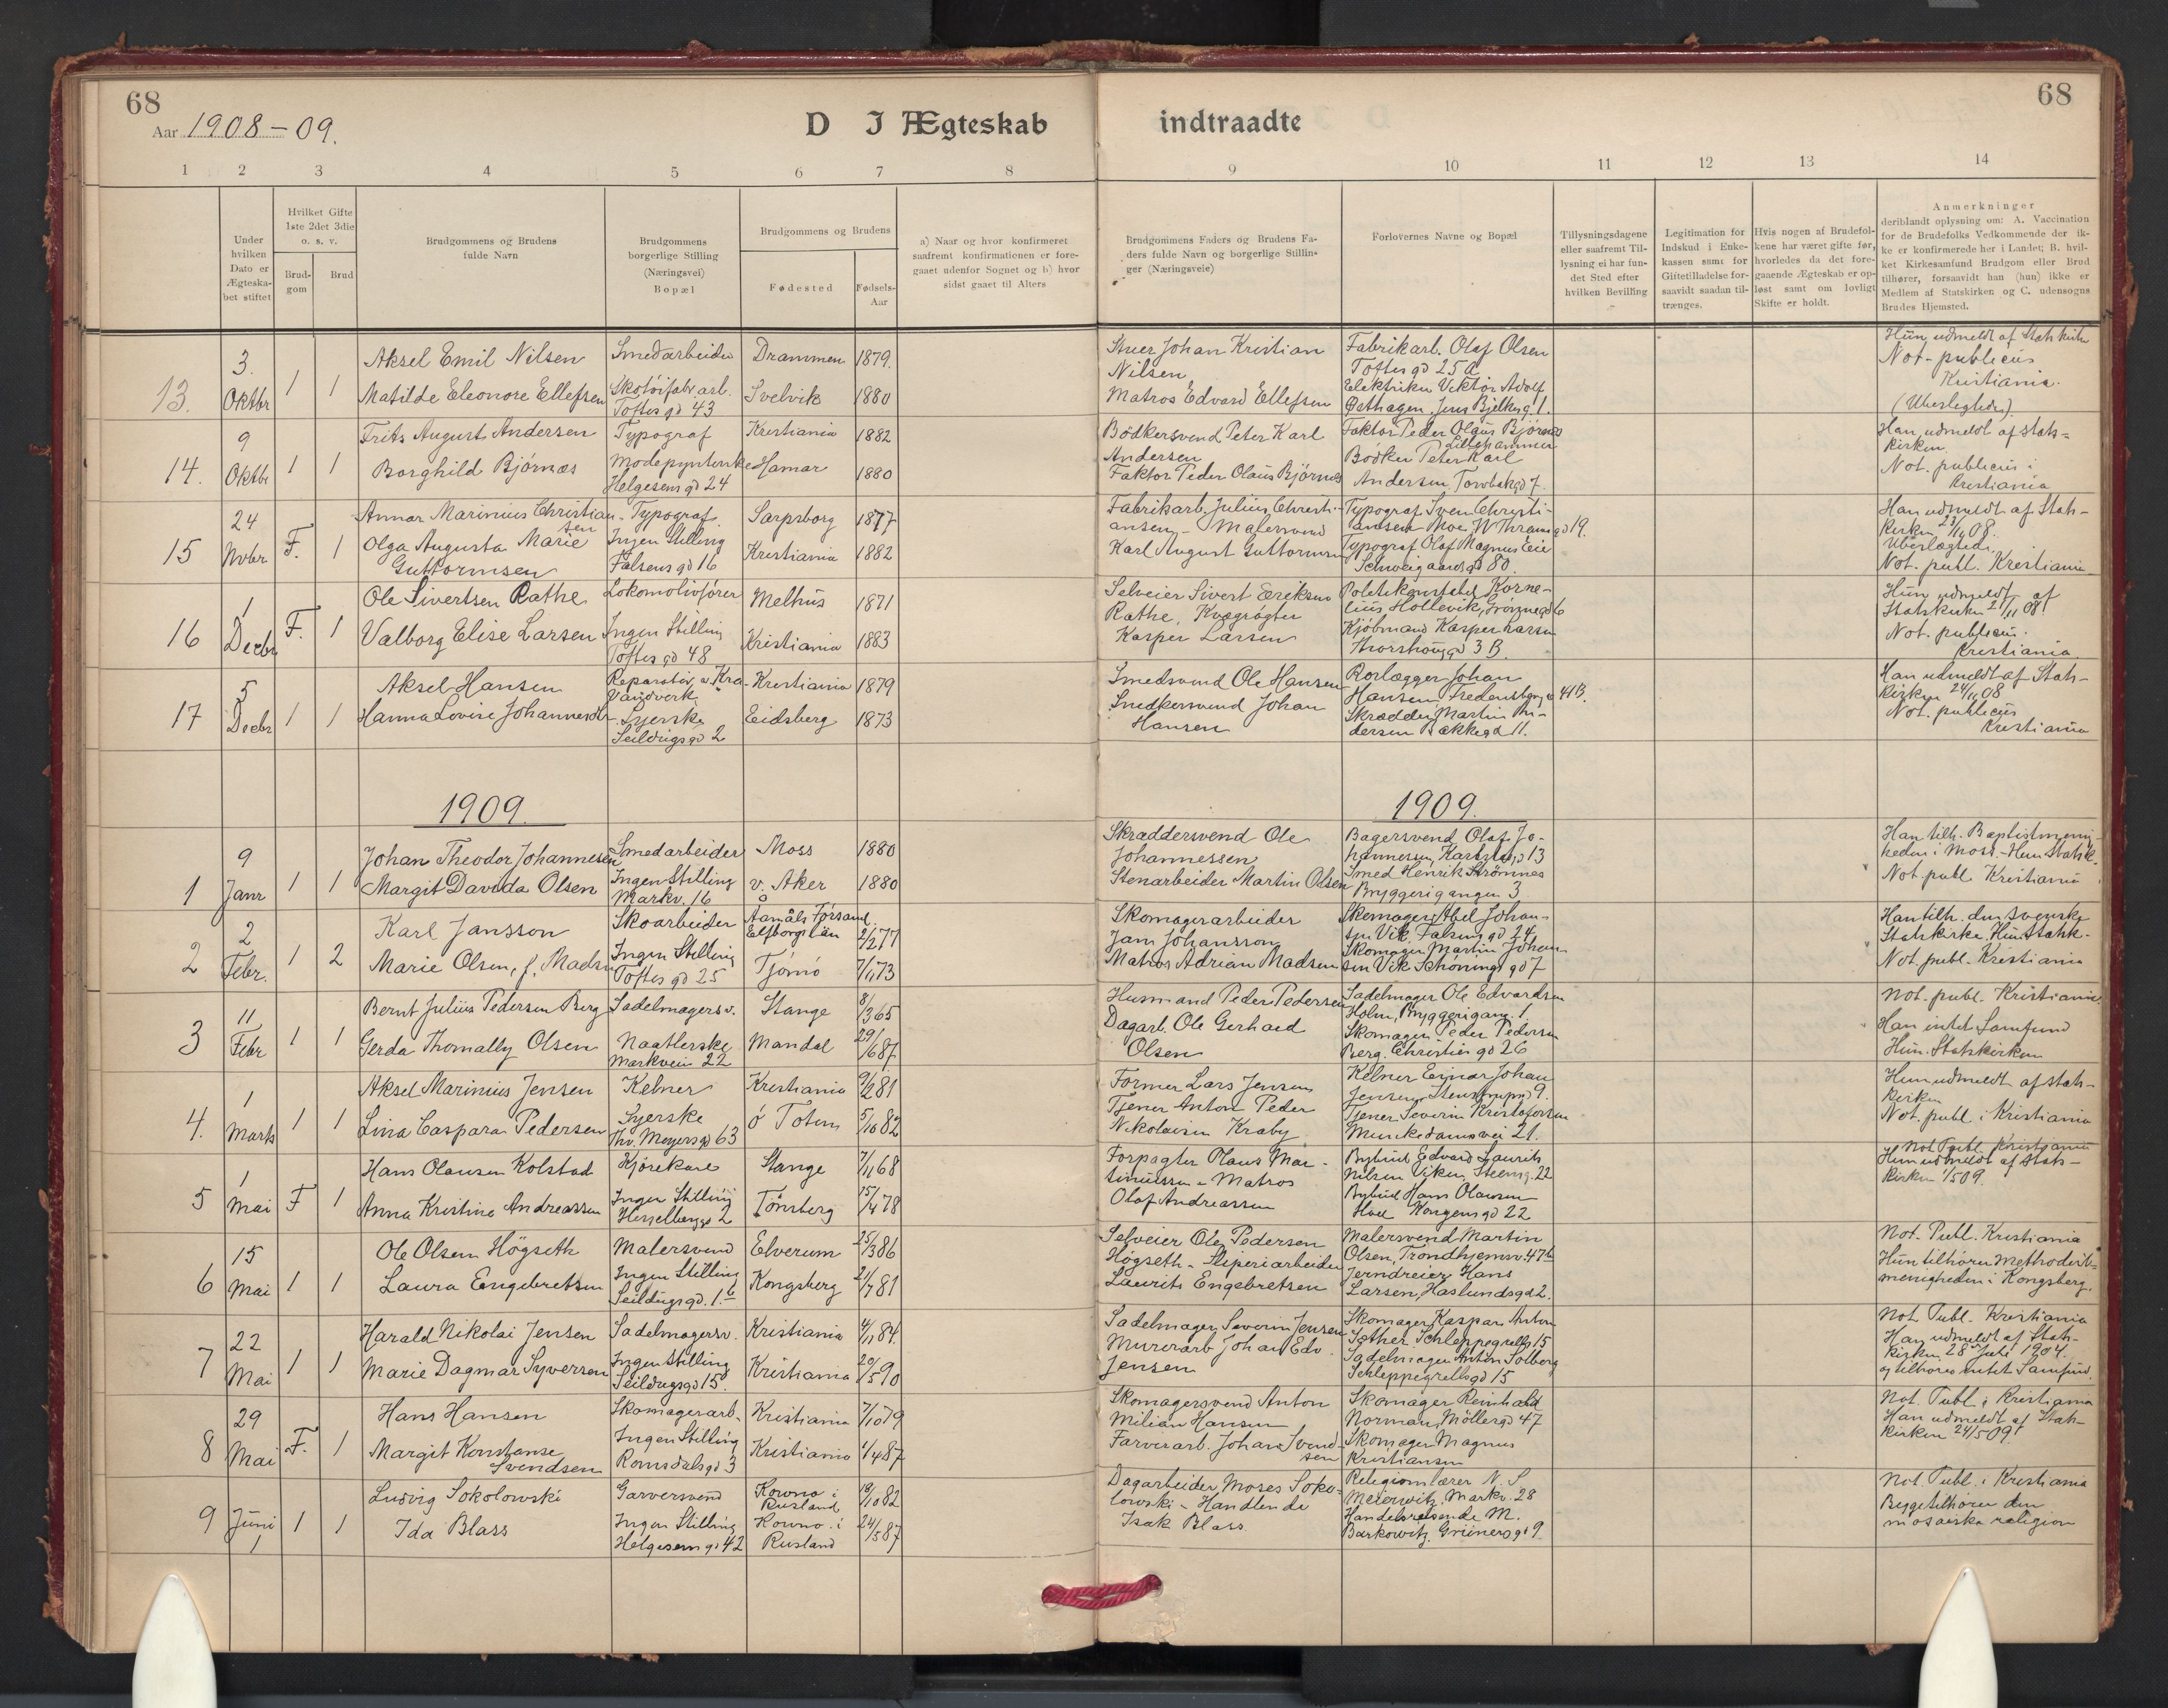 68
Aar 1908-09.
D I Ægteskab
indtraadte
68
1
2
3
4
5
6
7
8
9
10
11
12
13
14
Under hvilken Dato er Ægteskabet stiftet
Hvilket Gifte 1ste 2det 3die o. s. v.
Brudgom
Brud
Brudgommens og Brudens fulde Navn
Brudgommens borgerlige Stilling (Næringsvei) Bopæl
Brudgommens og Brudens
Fødested
Fødsels-Aar
a) Naar og hvor konfirmeret saafremt konfirmationen er foregaaet udenfor Sognet og b) hvor sidst gaaet til Alters
Brudgommens Faders og Brudens Faders fulde Navn og borgerlige Stillinger (Næringsveie)
Forlovernes Navne og Bopæl
Tillysningsdagene eller saafremt Tillysning ei har fundet Sted efter hvilken Bevilling
Legitimation for Indskud i Enkekassen samt for Giftetilladelse forsaavidt saadan tiltrænges.
Hvis nogen af Brudefolkene har været gifte før, hvorledes da det foregaaende Ægteskab er opløst samt om lovligt Skifte er holdt.
Anmerkninger
deriblandt oplysning om: A. Vaccination for de Brudefolks Vedkommende der ikke er konfirmerede her i Landet; B. hvilket Kirkesamfund Brudgom eller Brud tilhører, forsaavidt han (hun) ikke er Medlem af Statskirken og C. udensogns Brudes Hjemsted.
13. 3. Oktbr 1 1
Aksel Emil Nilsen Smedarbeider Drammen 1879.
Matilde Eleonore Ellefsen Skotøifabr. arb. Toftes gd 43 Svelvik 1880
Stuer Johan Kristian Nilsen
Matros Edvard Ellefsen
Fabrikarb. Olaf Olsen Toftes gd 25a
Elektriker Viktor Adolf Østhagen, Jens Bjelkes g. 1.
Hun udmeldt af Statskirken
Not. publicus Kristiania.
14. 9 Oktbr 1 1
Frits August Andersen Typograf Kristiania 1882
Borghild Bjørnæs Modepynterske Helgesens gd 24 Hamar 1880
Bødkersvend Peter Karl Andersen
Faktor Peder Olaus Bjørnæs
Faktor Peder Olaus Bjørnæs Lillehammer
Bødker Peter Karl Andersen, Torvbakgd 7.
Han udmeldt af Statskirken
Not. publicus i Kristiania
15 24 Novbr F. 1
Annar Marinius Christiansen Typograf Sarpsborg 1877
Olga Augusta Marie Guttormsen Ingen Stilling Falsens gd 16 Kristiania 1882
Fabrikarb. Julius Christiansen - Malersvend
Karl August Guttormsen
Typograf Sven Christiansen Moe, W Thranes gd 19.
Typograf Olaf Magnus Eie Schweigaardsgd 80.
Han udmeldt af Statskirken 23/11 08.
Not. publ. Kristiania
16 1 Decbr F. 1
Ole Sivertsen Rathe Lokomotivfører Melhus 1871
Valborg Elise Larsen Ingen Stilling Toftes gd 48 Kristiania 1883
Selveier Sivert Eriksen Rathe, Kvægrøgter
Kasper Larsen
Politikonstabel Kornelius Hollevik,
Kjøbmand Kasper Larsen Thorshougd 3 B.
Hun udmeldt af Statskirken 21/11 08
Not. publicus Kristiania.
17 5 Decbr 1 1
Aksel Hansen Reparatør v. Kra Vandverk Kristiania 1879
Hanna Lovise Johannesdtr. Syerske Seildugsgd 2 Eidsberg 1873
Smedsvend Ole Hansen
Snedkersvend Johan Hansen
Rørlægger Johan Hansen, Fredensborgv 41B.
Skrædder Martin Andersen Bækkegd 11.
Han udmeldt af Statskirken 24/11 08
Not. publicus Kristiania
1909.
1909.
1 9 Janr 1 1
Johan Theodor Johannesen Smedarbeider Moss 1880
Margit Davida Olsen Ingen Stilling Markv. 16 v. Aker 1880
Skræddersvend Ole Johannessen
Stenarbeider Martin Olsen
Bagersvend Olaf Johannessen,
Smed Henrik Strømnes Bryggerigangen 3
Han tilh. Baptistmenigheden i Moss - Hun Statsk.
Not. publ. Kristiania
2 2 Febr. 1 2
Karl Jansson Skoarbeider Åmåls Førsaml. Elfborgs län 2/2 77
Marie Olsen, f. Madsen Ingen Stilling Toftes gd 25 Tjømø 7/1 73
Skomagerarbeider Jan Johansson
Matros Adrian Madsen
Skomager Abel Johansen Vik, Falsens gd 24
Skomager Martin Johansen Vik Schønings gd 7
Han tilh. den svenske Statskirke. Hun Statsk.
Not. publ. Kristiania
3 11 Febr 1 1
Bernt Julius Pedersen Berg Sadelmagersv. Stange 8/3 65
Gerda Thomally Olsen Naatlerske Markveien 22 Mandal 29/6 87.
Husmand Peder Pedersen
Dagarb. Ole Gerhard Olsen
Sadelmager Ole Edvardsen Holm, Bryggerigang. 1.
Skomager Peder Pedersen Berg. Christies gd 26
Not. publ. Kristiania
Han intet Samfund
Hun. Statskirken
4. 1 Marts 1 1
Aksel Marinius Jensen Kelner Kristiania 9/2 81
Lina Caspara Pedersen Syerske Thv. Meyersgd 63 Ø Toten 5/10 82
Former Lars Jensen
Tjener Anton Peder Nikolaisen Kraby
Kelner Einar Johan Jensen, Stenstrupgd 9.
Tjener Severin Kristofersen Munkedamsvei 21.
Hun udmeldt af Statskirken
Not. publ. i Kristiania
5 1 Mai F 1
Hans Olausen Kolstad Kjørekarl Stange 7/11 68
Anna Kristine Andreassen Ingen Stilling Hesselbergsgd 2 Tønsberg 15/4 78
Forpagter Olaus Martinussen - Matros
Olaf Andreassen
Bybud Edvard Laurits Nilsen Viken, Steensg. 22
Bybud Hans Olausen Hoel Kongensgd 22
Not Publ. Kristiania
Hun udmeldt af Statskirken 1/5 09.
6 15 Mai 1 1
Ole Olsen Høgseth Malersvend Elverum 25/3 86
Laura Engebretsen Ingen Stilling Seildugsgd. 1.b Kongsberg 21/7 81
Selveier Ole Pedersen Høgseth - Sliperiarbeider
Laurits Engebretsen
Malersvend Martin Olsen, Trondhjemsv. 47b
Jerndreier Hans Larsen, Haslundsgd 2.
Not. Publ. Kristiania
Hun tilhører Methodistmenigheden i Kongsberg.
7 22 Mai 1 1
Harald Nikolai Jensen Sadelmagersv. Kristiania 4/11 84.
Marie Dagmar Syversen Ingen Stilling Seildugsgd 15. Kristiania 20/5 90
Sadelmager Severin Jensen
Murerarb Johan Edv. Jensen
Skomager Kaspar Anton Sæther Schleppegrellsg 15
Sadelmager Anton Solberg Schleppegrellsgd 15
Not. Publ. Kristiania
Han udmeldt af Statskirken 28 Juli 1904. og tilhører intet Samfund.
8 29 Mai F. 1
Hans Hansen Skomagerarb. Kristiania 7/10 79
Margit Konstanse Svendsen Ingen Stilling Romsdalsgd 3 Kristiania 1/4 87
Skomagersvend Anton Milian Hansen
Farverarb. Johan Svendsen
Skomager Reinhald Norman, Møllergd 47
Skomager Magnus Kristiansen
Not. Publ i Kristiania
Han udmeldt af Statskirken 24/5 09.
9 Juni 1 1 1
Ludvig Sokolowski Garversvend Kowno i Rusland 18/10 82
Ida Blass Ingen Stilling Helgesens gd 42 Kowno i Rusland 24/5 87
Dagarbeider Moses Sokolowski - Handlende
Isak Blass
Religionslærer N. S. Meierwitz, Markv. 28
Handelsreisende M. Barkowitz, Grüners gd 9.
Not. Publ. i Kristiania
Begge tilhører den mosaiske religion